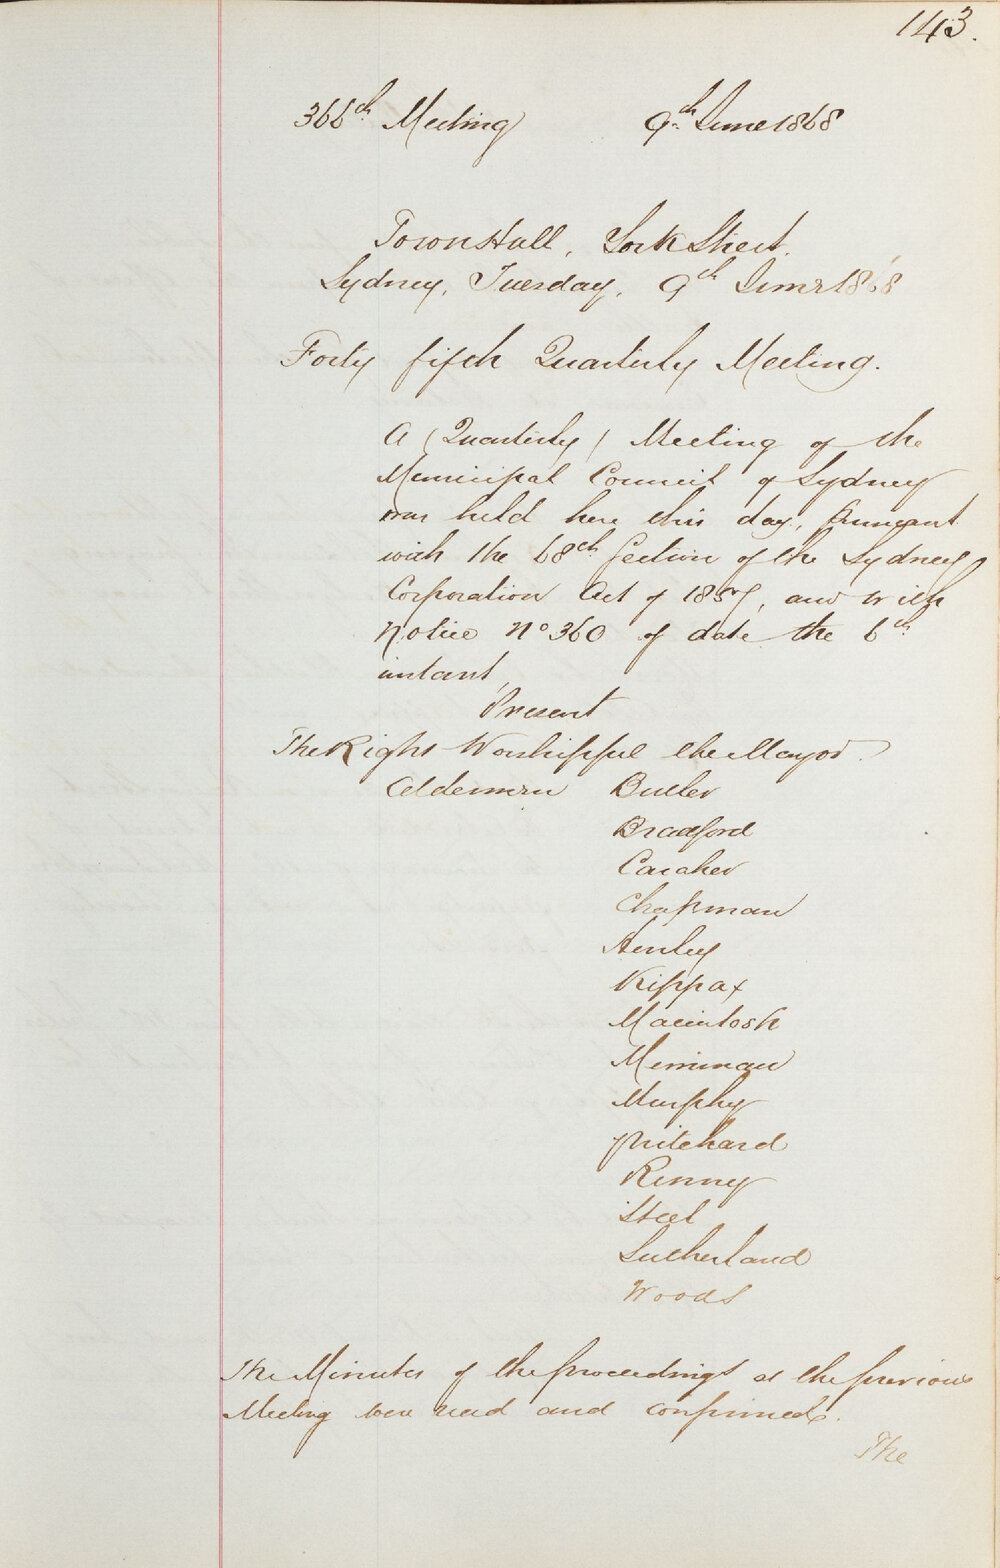 143.
366th Meeting 9th June 1868
Town Hall, York Street.
Sydney, Tuesday, 9th June 1868
Forty fifth Quarterly Meeting.
A (Quarterly) Meeting of the
Municipal Council of Sydney
was held here this day, Pursuant
with the 68th Section of the Sydney
Corporation Act of 1857, and with
Notice No 360 of date the 6th
instant,
Present
The Right Worshipful the Mayor.
Aldermen Butler
Bradford
Caraher
Chapman
Henley
Kippax
Macintosh
Merriman
Murphy
Pritchard
Renny
Steel
Sutherland
Woods
The Minutes of the proceedings at the previous
Meeting were read and confirmed.
The